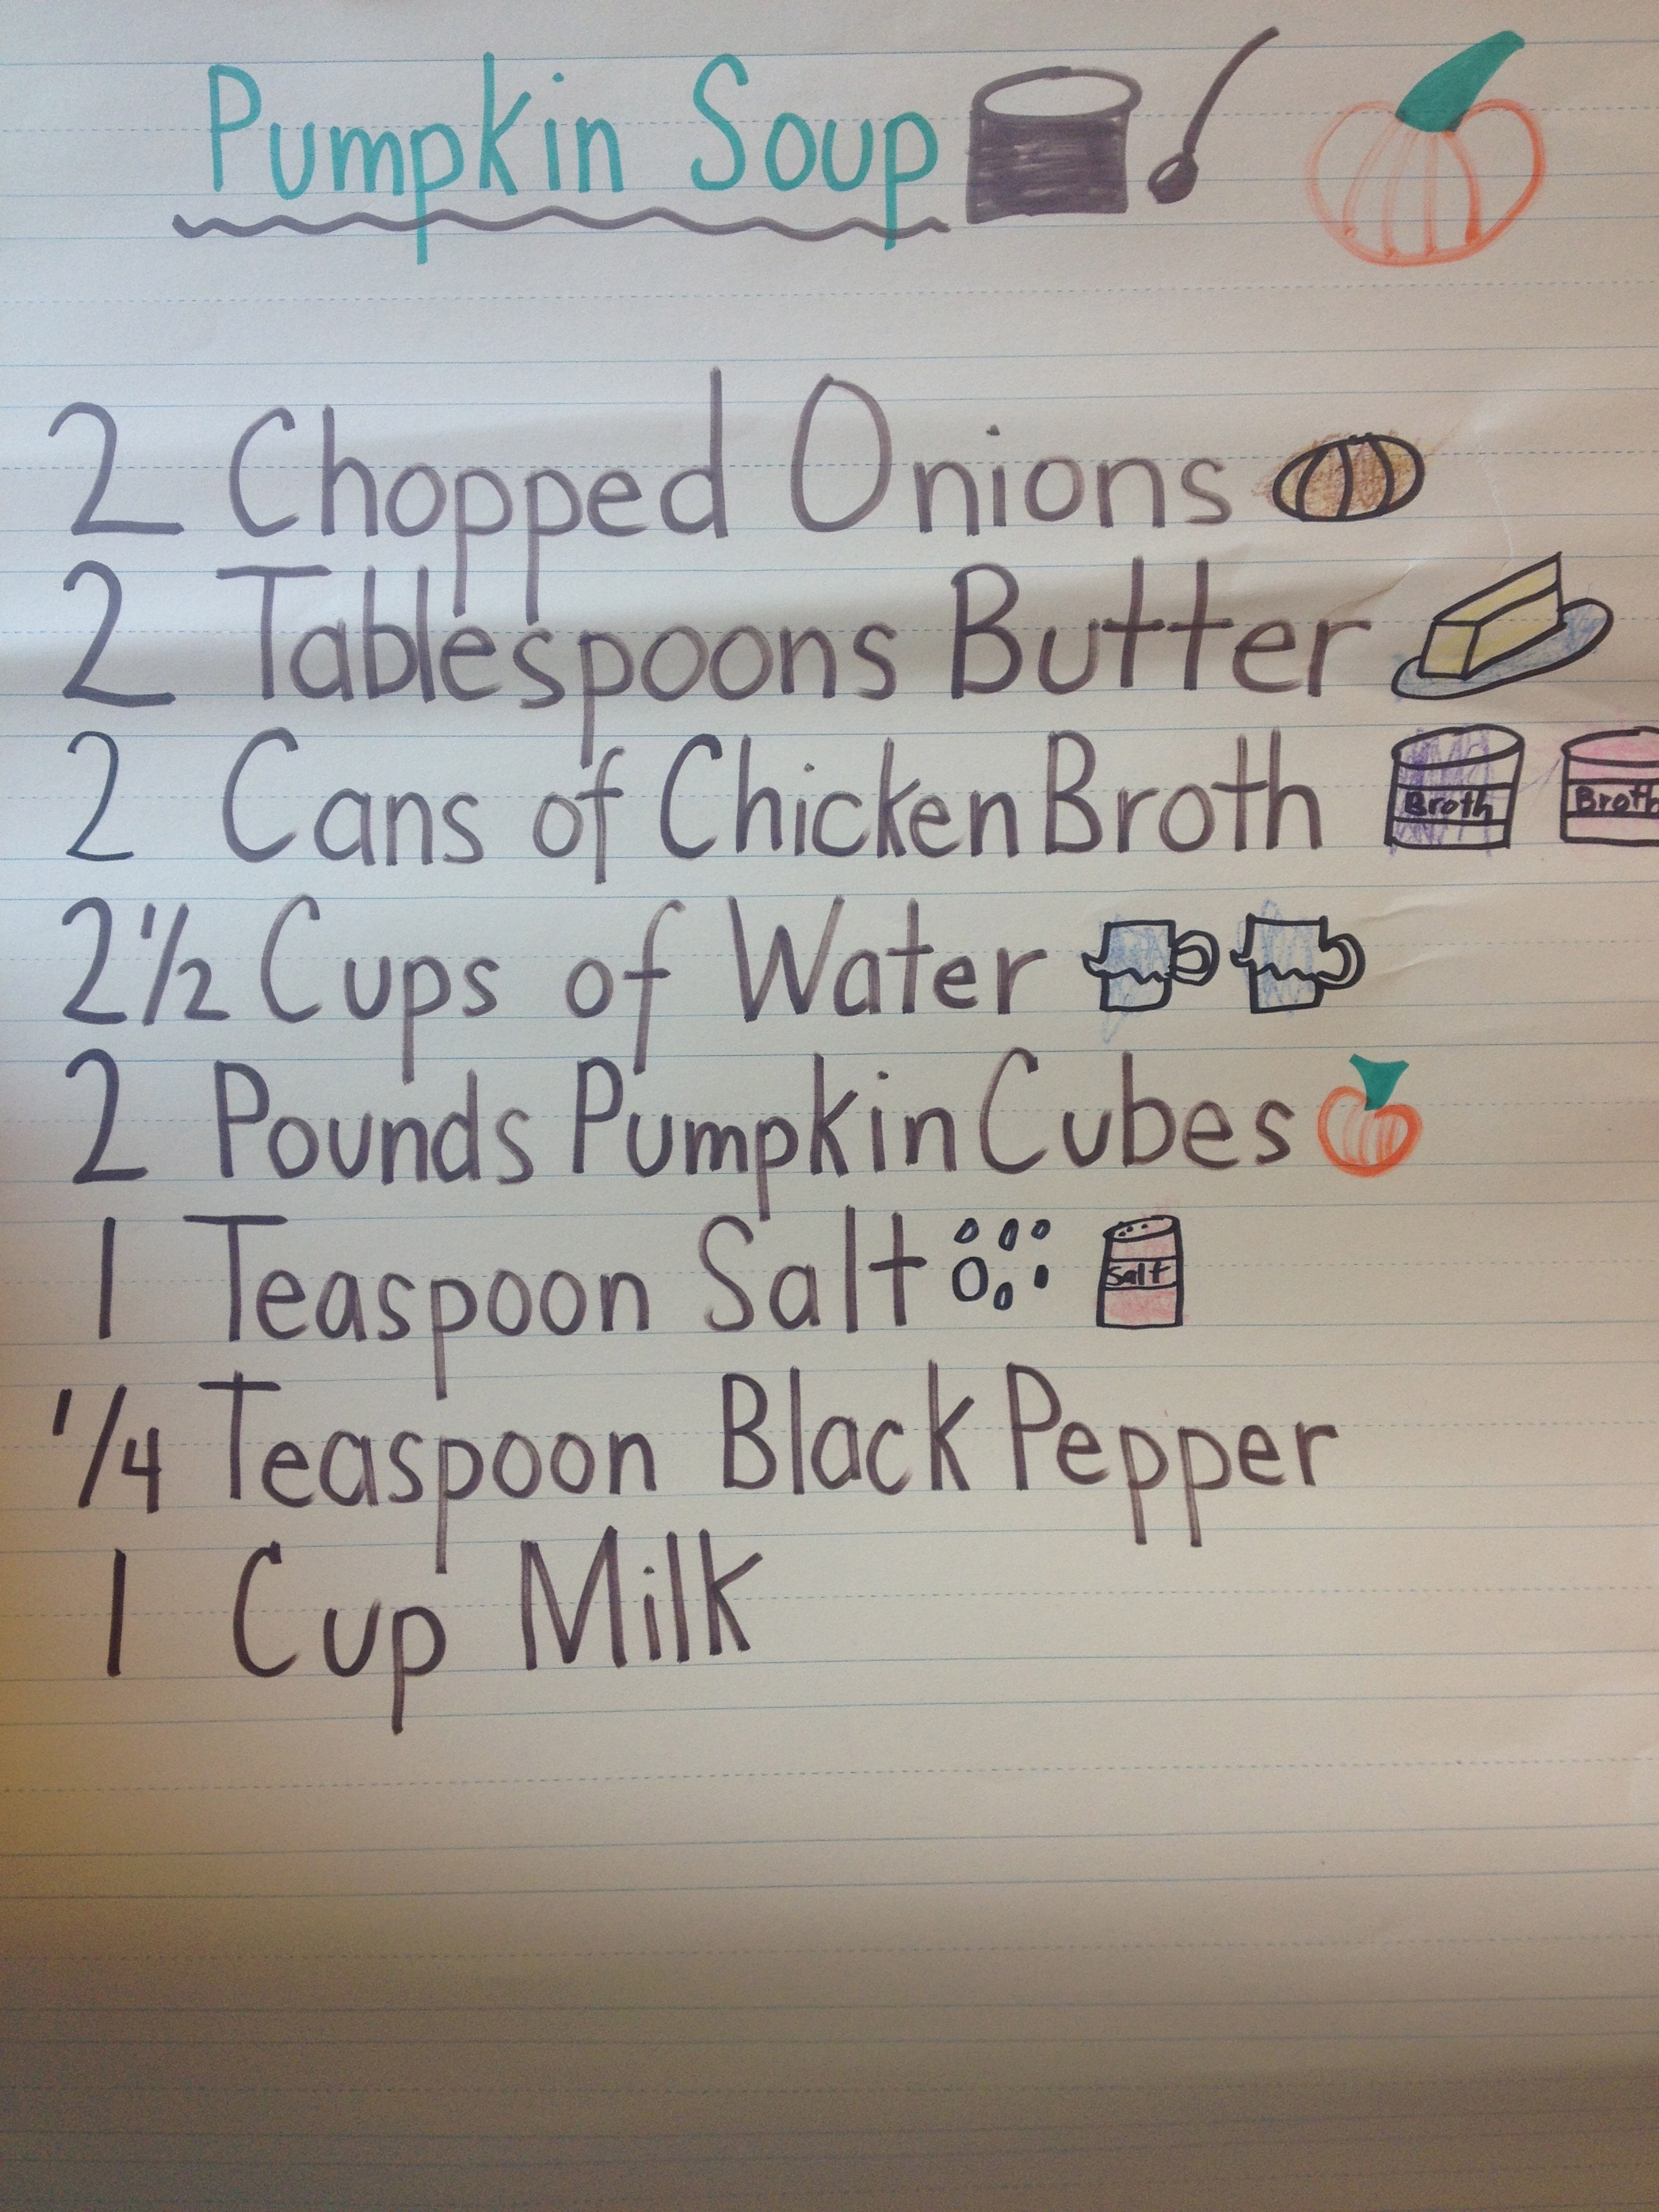 Pumpkin Soup
2 Chopped Onions
2 Tablespoons Butter
2 Cans of Chicken Broth
Broth Broth
2 1/2 Cups of Water
2 Pounds Pumpkin Cubes
1 Teaspoon Salt
Salt
1/4 Teaspoon Black Pepper
1 Cup Milk